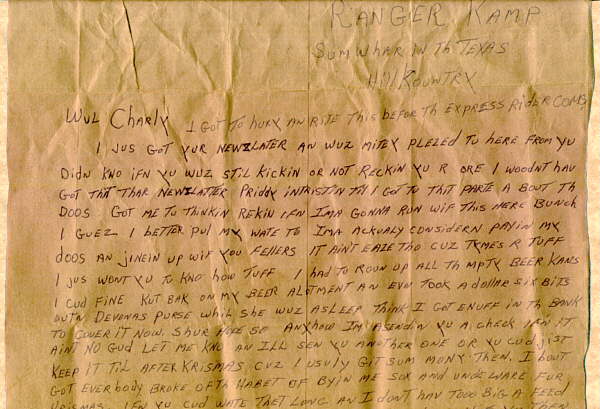 RANGER KAMP
SUMWHAR IN Th TEXAS
Hill KOUNTRY
WUL Charly I GOT TO hURY AN RITE This BEFOR Th EXPRESS RIDER COMS,
I JUS GOT YUR NEWZLATER AN WUZ MITEY PLEZED TO hERE FROM YU
DIDN KNO IFN YU WUZ STIL KICKIN OR NOT RECKIN YU R ORE I WOODNT hAV
GOT THAT ThAR NEWZLATTER PRIDDY INTRISTIN TIl I GOT TO THIT PARTE A BOUT Th
DOOS GOT ME TO ThINKIN REKIN IFN IMA GONNA RUN WIF THIS HERE BUNCH
I GUEZ I bETTER PUl MY WATE TO IMA ACKUALY CONSIDERN PAYIN MY
DOOS AN JINEIN UP WIF YOU FELLERS IT AIN'T EAZE THO CUZ TYMES R TUFF
I JUS WONT YU TO KNO hOW TUFF I hAD TO ROUN UP ALL Th MPTY BEER KANS
I CUD FINE KUT BAK ON MY BEER ALOTMENT AN EVN TOOK A dOLLAR SIX BITS
OUTN DEVENAS PURSE WhILE ShE WUZ ASLEEP ThINK I GOT ENUFF IN Th BANK
TO COVER IT NOW. ShUR HOPE SO ANYhOW IM ASENDIN YU A CHECK IFN IT
AINT NO GUD LET ME KNO AN ILL SEN YU ANOTHER ONE OR YU CUD JIST
KEEP IT TIL AFTER KRISMAS CUZ I USULY GIT SUM MONY THEN. I bOUT
GOT EVERbODY BROKE OFTA HABET OF BYIN ME SOX AND UNDEWARE FUR
KRISMAS IFN YU CUD WATE THET LONG AN I DUNT hAV TOOO BIG A FEED